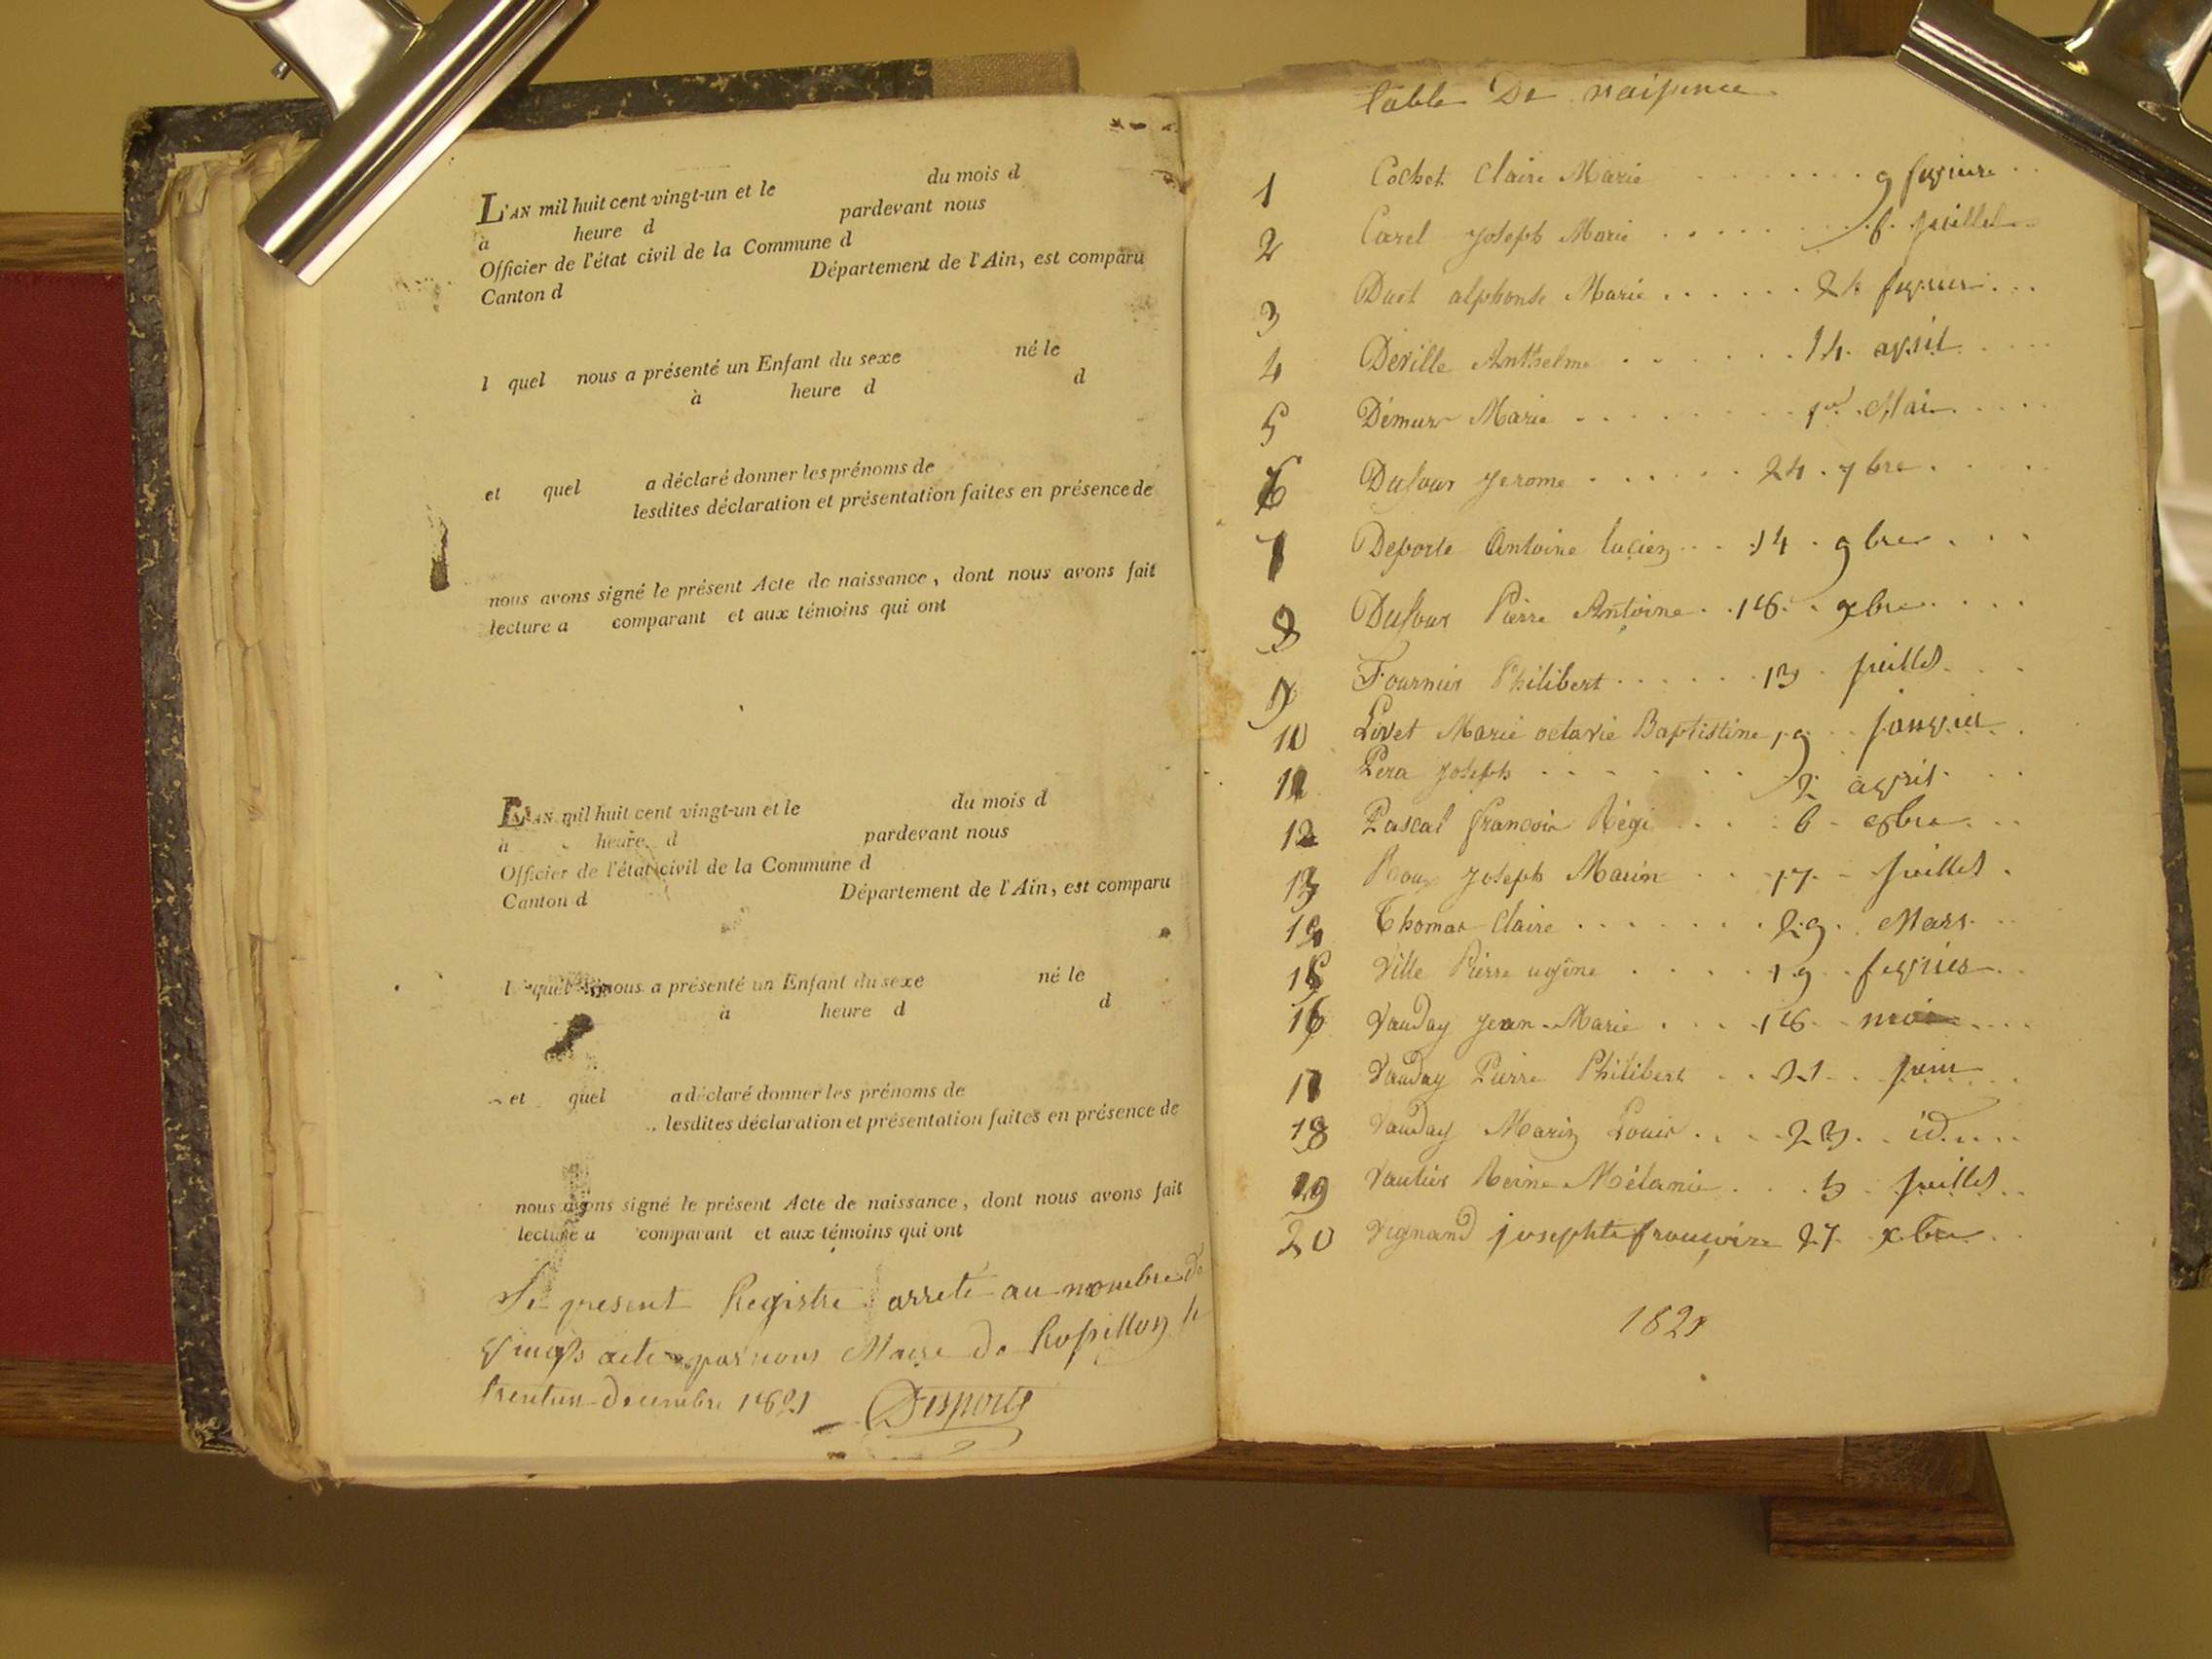 L'AN mil huit cent vingt-un et le du mois d
à heure d pardevant nous
Officier de l'état civil de la Commune d
Canton d Département de l'Ain, est comparu
l quel nous a présenté un Enfant du sexe né le
à heure d d
et quel a déclaré donner les prénoms de
lesdites déclaration et présentation faites en présence de
nous avons signé le présent Acte de naissance, dont nous avons fait
lecture a comparant et aux témoins qui ont
L'AN mil huit cent vingt-un et le du mois d
à heure d pardevant nous
Officier de l'état civil de la Commune d
Canton d Département de l'Ain, est comparu
l quel nous a présenté un Enfant du sexe né le
à heure d d
et quel a déclaré donner les prénoms de
lesdites déclaration et présentation faites en présence de
nous avons signé le présent Acte de naissance, dont nous avons fait
lecture a comparant et aux témoins qui ont
Le present Registre arreté au nombre de
vingts acte par nous Maire de Rossillon le
trentun decembre 1821 Desporte
table De naissence
1 Cochet Claire Marie 9 fevriere
2 Carel joseph Marie 6 juillet
3 Duet alphonse Marie 24 fevrier
4 Deville Anthelme 14 avril
5 Démeur Marie 1er Mai
6 Dufour jerome 24 7bre
7 Deporte Antoine lucien 14 9bre
8 Dufour Pierre Antoine 16 xbre
9 Fournier Philibert 13 juillet
10 Livet Marie octavie Baptistine 19 janvier
11 Pera joseph 2 avril
12 Pascal francois Régi 6 8bre
13 Roux joseph Marin 17 juillet
14 Thomas Claire 29 Mars
15 Ville Pierre ugène 19 fevrier
16 Vauday jean Marie 16 mai
17 Vauday Pierre Philibert 21 juin
18 Vauday Marin Louis 23 id
19 Vautier Reine Mélanie 5 juillet
20 Vignand josephte françoize 27 xbre
1821